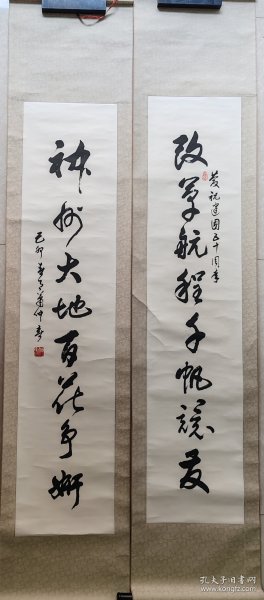 改革航程千帆竞发
庆祝建国五十周年
神州大地百花争妍
己卯
孔夫子旧书网
www.kongfz.com